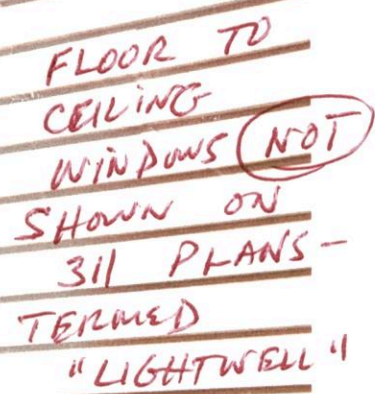 FLOOR TO
CEILING
WINDOWS NOT
SHOWN ON
311 PLANS-
TERMED
"LIGHTWELL"